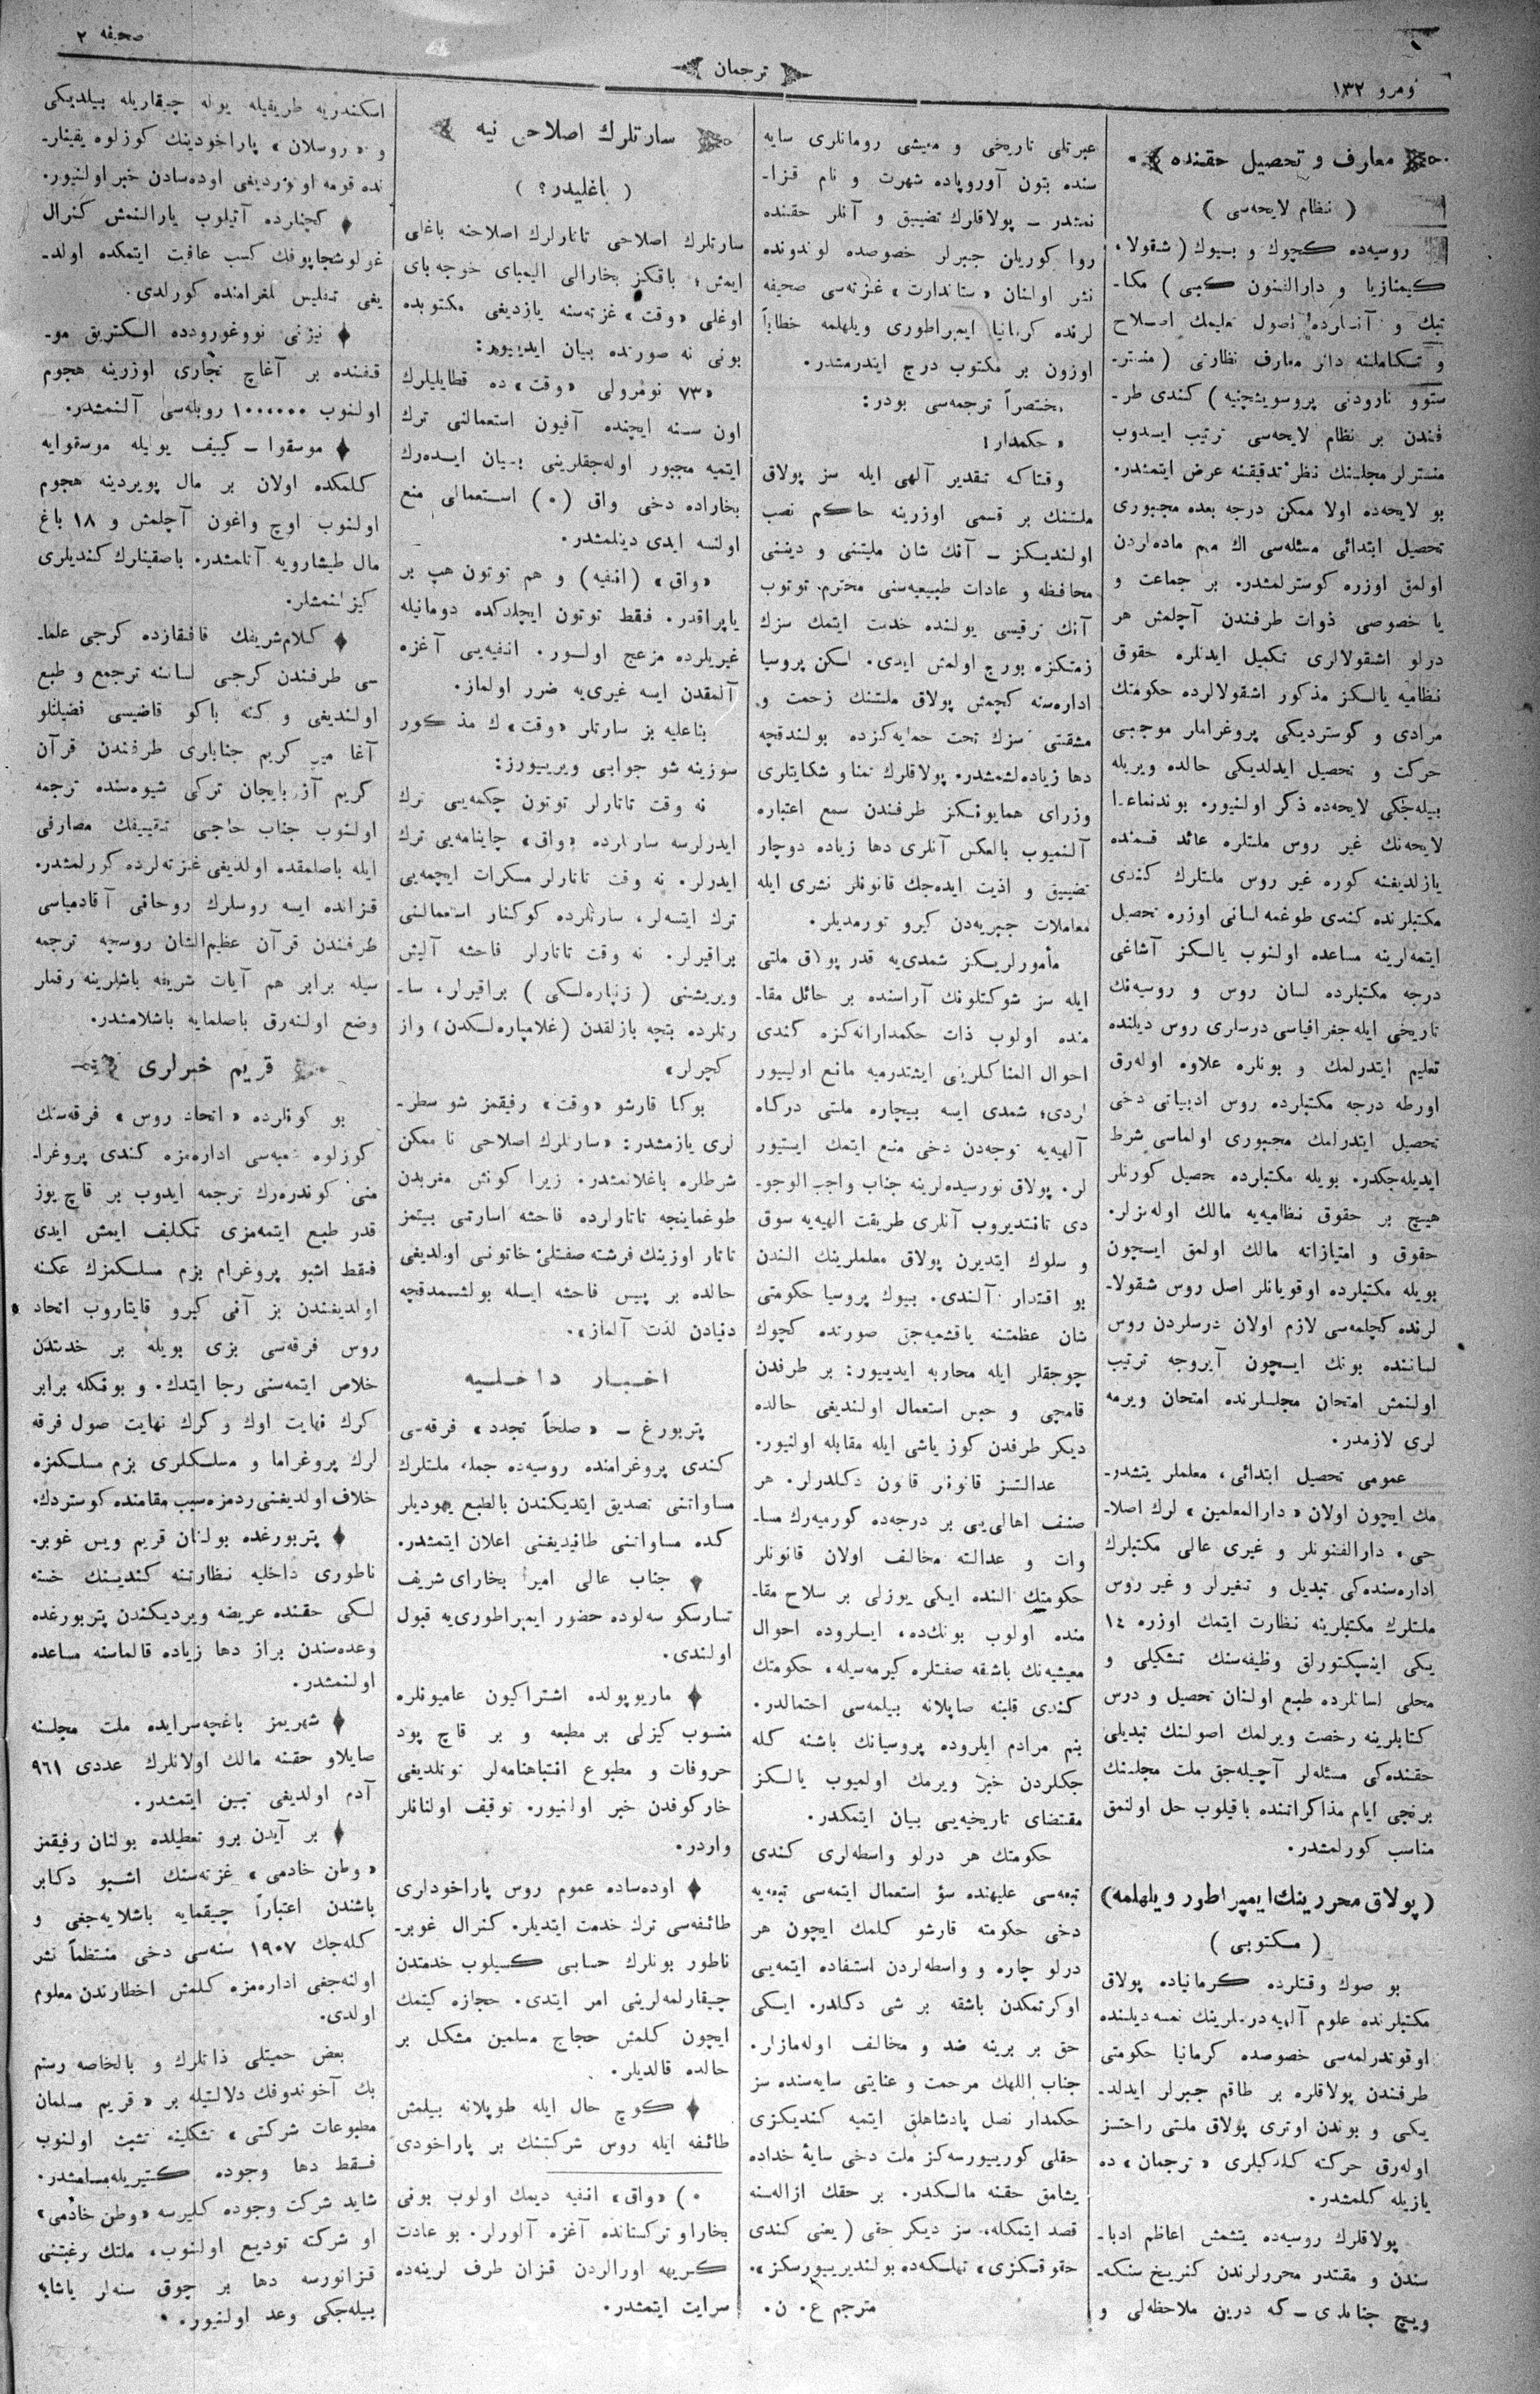 نومرو ١٣٢
ترجمان
صحیفه ٢
معارف و تحصیل حقنده
( نظام لایحه‌سی )
روسیه‌ده کچوک و بیوک ( شقولا،
کیمنازیا و دارالفنون کبی ) مکا-
تیک و آنلرده اصول تعلیمک اصلاح
و تکاملنه دائر معارف نظارتی ( منستر-
ستوو نارودنی پروسویشچنیه ) کندی طر-
فندن بر نظام لایحه‌سی ترتیب ایدوب
منسترلر مجلسنک نظر تدقیقنه عرض ایتمشدر.
بو لایحه‌ده اولا ممکن درجه بعده مجبوری
تحصیل ابتدائی مسئله‌سی اک مهم ماده‌لردن
اولمق اوزره کوسترلمشدر. بر جماعت و
یا خصوصی ذوات طرفندن آچلمش هر
درلو اشقولالری تکمیل ایدنلره حقوق
نظامیه یالکز مذکور اشقولالرده حکومتک
مرادی و کوستردیکی پروغراملر موجبی
حرکت و تحصیل ایدلدیکی حالده ویریله
بیله‌جکی لایحه‌ده ذکر اولنیور. بوندنماعدا
لایحه‌نک غیر روس ملتلره عائد قسمنده
یازلدیغنه کوره غیر روس ملتلرک کندی
مکتبلرنده کندی طوغمه لسانی اوزره تحصیل
ایتمه‌لرینه مساعده اولنوب یالکز آشاغی
درجه مکتبلرده لسان روس و روسیه‌نک
تاریخی ایله جغرافیاسی درسلری روس دیلنده
تعلیم ایتدرلمک و بونلره علاوه اوله‌رق
اورطه درجه مکتبلرده روس ادبیاتی دخی
تحصیل ایتدرلمک مجبوری اولماسی شرط
ایدیله‌جکدر. بویله مکتبلرده تحصیل کورنلر
هیچ بر حقوق نظامیه‌یه مالک اوله‌مزلر.
حقوق و امتیازاته مالک اولمق ایچون
بویله مکتبلرده اوقویانلر اصل روس شقولا-
لرنده کچلمه‌سی لازم اولان درسلردن روس
لساننده بونک ایچون آیروجه ترتیب
اولنمش امتحان مجلسلرنده امتحان ویرمه
لری لازمدر.
عمومی تحصیل ابتدائی، معلملر یتشدر-
مک ایچون اولان « دارالمعلمین » لرک اصلا-
حی، دارالفنونلر و غیری عالی مکتبلرک
اداره‌سنده‌کی تبدیل و تغیرلر و غیر روس
ملتلرک مکتبلرینه نظارت ایتمک اوزره ١٤
یکی اینسپکتورلق وظیفه‌سنک تشکیلی و
محلی لسانلرده طبع اولنان تحصیل و درس
کتابلرینه رخصت ویرلمک اصولنک تبدیلی
حقنده‌کی مسئله‌لر آچیله‌جق ملت مجلسنک
برنجی ایام مذاکراتنده باقیلوب حل اولنمق
مناسب کورلمشدر.
( پولاق محررینک ایمپراطور ویلهلمه )
( مکتوبی )
بو صوک وقتلرده کرمانیاده پولاق
مکتبلرنده علوم آلهیه درسلرینک نمسه دیلنده
اوقوتدرلمه‌سی خصوصده کرمانیا حکومتی
طرفندن پولاقلره بر طاقم جبرلر ایدلد-
یکی و بوندن اوتری پولاق ملتی راحتسز
اوله‌رق حرکته کلدکلری « ترجمان » ده
یازیله کلمشدر.
پولاقلرک روسیه‌ده یتشمش اعاظم ادبا-
سندن و مقتدر محررلرندن کنریخ سنکه-
ویچ جنابلری ـ که درین ملاحظه‌لی و
عبرتلی تاریخی و معیشی رومانلری سایه
سنده بتون آوروپاده شهرت و نام قزا-
نمشدر ـ پولاقلرک تضییق و آنلر حقنده
روا کوریلن جبرلر خصوصده لوندونده
نشر اولنان « ستاندارت » غزته‌سی صحیفه
لرنده کرمانیا ایمپراطوری ویلهلمه خطاباً
اوزون بر مکتوب درج ایتدرمشدر.
مختصراً ترجمه‌سی بودر:
« حکمدار!
وقتاکه تقدیر آلهی ایله سز پولاق
ملتنک بر قسمی اوزرینه حاکم نصب
اولندیکز ـ آنک شان ملیتنی و دیننی
محافظه و عادات طبیعیه‌سنی محترم توتوب
آنک ترقیسی یولنده خدمت ایتمک سزک
ذمتکزه بورج اولمش ایدی. لکن پروسیا
اداره‌سنه کچمش پولاق ملتنک زحمت و
مشقتی سزک تحت حمایه‌کزده بولندقچه
دها زیاده‌لشمشدر. پولاقلرک تمنا و شکایتلری
وزرای همایونکز طرفندن سمع اعتباره
آلنمیوب بالعکس آنلری دها زیاده دوچار
تضییق و اذیت ایده‌جک قانونلر نشری ایله
معاملات جبریه‌دن کیرو تورمدیلر.
مأمورلریکز شمدی‌یه قدر پولاق ملتی
ایله سز شوکتلونک آراسنده بر حائل مقا-
منده اولوب ذات حکمدارانه‌کزه کندی
احوال المناکلرینی ایشتدرمیه مانع اولییور
لردی؛ شمدی ایسه بیچاره ملتی درگاه
آلهیه‌یه توجه‌دن دخی منع ایتمک ایستیور
لر. پولاق نورسیده‌لرینه جناب واجب الوجو-
دی تانتدیروب آنلری طریقت الهیه‌یه سوق
و سلوک ایتدیرن پولاق معلملرینک الندن
بو اقتدار آلندی. بیوک پروسیا حکومتی
شان عظمتنه یاقشمیه‌جق صورتده کچوک
چوجقلر ایله محاربه ایدییور: بر طرفدن
قامچی و حبس استعمال اولندیغی حالده
دیگر طرفدن کوز یاشی ایله مقابله اولنیور.
عدالتسز قانونلر قانون دکلدرلر. هر
صنف اهالی‌یی بر درجه‌ده کورمیه‌رک مسا-
وات و عدالته مخالف اولان قانونلر
حکومتک النده ایکی یوزلی بر سلاح مقا-
منده اولوب بونک‌ده، ایلروده احوال
معیشیه‌نک باشقه صفتلره کیرمه‌سیله، حکومتک
کندی قلبنه صاپلانه بیلمه‌سی احتمالدر.
بنم مرادم ایلروده پروسیانک باشنه کله
جکلردن خبر ویرمک اولمیوب یالکز
مقتضای تاریخیه‌یی بیان ایتمکدر.
حکومتک هر درلو واسطه‌لری کندی
تبعه‌سی علیهنده سؤ استعمال ایتمه‌سی تبعه‌یه
دخی حکومته قارشو کلمک ایچون هر
درلو چاره و واسطه‌لردن استفاده ایتمه‌یی
اوکرتمکدن باشقه بر شی دکلدر. ایکی
حق بر برینه ضد و مخالف اوله‌مازلر.
جناب اللهک مرحمت و عنایتی سایه‌سنده سز
حکمدار نصل پادشاهلق ایتمیه کندیکزی
حقلی کورییورسه‌کز ملت دخی سایهٔ خداده
یشامق حقنه مالکدر. بر حقک ازاله‌سنه
قصد ایتمکله، سز دیگر حقی ( یعنی کندی
حقوقکزی، تهلکه‌ده بولندیرییورسکز ».
مترجم ع. ن.
سارتلرک اصلاحی نیه
( باغلیدر؟ )
سارتلرک اصلاحی تاتارلرک اصلاحنه باغلی
ایمش؛ باقکز بخارالی الیمبای خوجه‌بای
اوغلی « وقت » غزته‌سنه یازدیغی مکتوبده
بونی نه صورتده بیان ایدییور:
« ٧٣ نومرولی « وقت » ده قطایلیلرک
اون سنه ایچنده آفیون استعمالنی ترک
ایتمیه مجبور اوله‌جقلرینی بیان ایده‌رک
بخاراده دخی واق (٠) استعمالی منع
اولنسه ایدی دینلمشدر.
« واق » (انفیه) و هم توتون هپ بر
یاپراقدر. فقط توتون ایچلدکده دومانیله
غیریلرده مزعج اولور. انفیه‌یی آغزه
آلمقدن ایسه غیری‌یه ضرر اولماز.
بناعلیه بز سارتلر « وقت » ک مذکور
سوزینه شو جوابی ویرییورز:
نه وقت تاتارلر توتون چکمه‌یی ترک
ایدرلرسه سارتلرده « واق » چاینامه‌یی ترک
ایدرلر. نه وقت تاتارلر مسکرات ایچمه‌یی
ترک ایتسه‌لر، سارتلرده کوکنار استعمالنی
براقیرلر. نه وقت تاتارلر فاحشه آلیش
ویریشنی ( زنپاره‌لکی ) براقیرلر، سا-
رتلرده بتچه بازلقدن (غلامپاره‌لکدن) واز
کچرلر »
بوکا قارشو « وقت » رفیقمز شو سطر-
لری یازمشدر: « سارتلرک اصلاحی نا ممکن
شرطلره باغلانمشدر. زیرا کونش مغربدن
طوغماینچه تاتارلرده فاحشه اسارتی بیتمز
تاتار اوزینک فرشته صفتلی خاتونی اولدیغی
حالده بر پیس فاحشه ایله بولشمدقچه
دنیادن لذت آلماز ».
اخبار داخلیه
پتربورغ ـ « صلحاً تجدد » فرقه‌سی
کندی پروغرامنده روسیه‌ده جمله ملتلرک
مساواتنی تصدیق ایتدیکندن بالطبع یهودیلر
کده مساواتنی طانیدیغنی اعلان ایتمشدر.
♦ جناب عالی امیر بخارای شریف
تسارسکو سه‌لوده حضور ایمپراطوری‌یه قبول
اولندی.
♦ ماریوپولده اشتراکیون عامیونلره
منسوب کیزلی بر مطبعه و بر قاچ پود
حروفات و مطبوع انتباهنامه‌لر توتلدیغی
خارکوفدن خبر اولنیور. توقیف اولنانلر
واردر.
♦ اوده‌ساده عموم روس پاراخودلری
طائفه‌سی ترک خدمت ایتدیلر. کنرال غوبر-
ناطور بونلرک حسابی کسیلوب خدمتدن
چیقارلمه‌لرینی امر ایتدی. حجازه کیتمک
ایچون کلمش حجاج مسلمین مشکل بر
حالده قالدیلر.
♦ کوچ حال ایله طوپلانه بیلمش
طائفه ایله روس شرکتنک بر پاراخودی
٠) « واق » انفیه دیمک اولوب بونی
بخارا و ترکستانده آغزه آلورلر. بو عادت
کریهه اورالردن قزان طرف لرینه‌ده
سرایت ایتمشدر.
اسکندریه طریقیله یوله چیقاریله بیلدیکی
و « روسلان » پاراخودینک کوزلوه یقینلر-
نده قومه اوتردیغی اوده‌سادن خبر اولنیور.
♦ کچنلرده آتیلوب یارالنمش کنرال
غولوشچاپوفک کسب عافیت ایتمکده اولد-
یغی تفلیس تلغرامنده کورلدی.
♦ نیژنی نووغورودده الکتریق مو-
قفنده بر آغاچ تجاری اوزرینه هجوم
اولنوب ١٠٠٠٠٠٠ روبله‌سی آلنمشدر.
♦ موسقوا ـ کییف یولیله موسقوایه
کلمکده اولان بر مال پویزدینه هجوم
اولنوب اوچ واغون آچلمش و ١٨ باغ
مال طیشارویه آتلمشدر. باصقینلرک کندیلری
کیزلنمشلر.
♦ کلام شریفک قافقازده کرجی علما-
سی طرفندن کرجی لساننه ترجمع و طبع
اولندیغی و کنه باکو قاضیسی فضیلتلو
آغا میر کریم جنابلری طرفندن قرآن
کریم آزربایجان ترکی شیوه‌سنده ترجمه
اولنوب جناب حاجی تقییفک مصارفی
ایله باصلمقده اولدیغی غزته‌لرده کورلمشدر.
قزانده ایسه روسلرک روحانی آقادمیاسی
طرفندن قرآن عظیم‌الشان روسجه ترجمه
سیله برابر هم آیات شریفه باشلرینه رقملر
وضع اولنه‌رق باصلمایه باشلامشدر.
قریم خبرلری
بو کونلرده « اتحاد روس » فرقه‌سنک
کوزلوه شعبه‌سی اداره‌مزه کندی پروغرا-
منی کوندره‌رک ترجمه ایدوب بر قاچ یوز
قدر طبع ایتمه‌مزی تکلیف ایمش ایدی
فقط اشبو پروغرام بزم مسلکمزک عکسنه
اولدیغندن بز آنی کیرو قایتاروب اتحاد
روس فرقه‌سی بزی بویله بر خدمتدن
خلاص ایتمه‌سنی رجا ایتدک. و بونکله برابر
کرک نهایت اوک و کرک نهایت صول فرقه
لرک پروغراما و مسلکلری بزم مسلکمزه
خلاف اولدیغنی ردمزه سبب مقامنده کوستردک.
♦ پتربورغده بولنان قریم ویس غوبر-
ناطوری داخلیه نظارتنه کندیسنک خسته
لکی حقنده عریضه ویردیکندن پتربورغده
وعده‌سندن براز دها زیاده قالماسنه مساعده
اولنمشدر.
♦ شهریمز باغچه‌سرایده ملت مجلسنه
صایلاو حقنه مالک اولانلرک عددی ٩٦١
آدم اولدیغی تبین ایتمشدر.
♦ بر آیدن برو تعطیلده بولنان رفیقمز
« وطن خادمی » غزته‌سنک اشبو دکابر
باشندن اعتباراً چیقمایه باشلایه‌جغی و
کله‌جک ١٩٠٧ سنه‌سی دخی منتظماً نشر
اولنه‌جغی اداره‌مزه کلمش اخطارندن معلوم
اولدی.
بعض حمیتلی ذاتلرک و بالخاصه رستم
بک آخوندوفک دلالتیله بر « قریم مسلمان
مطبوعات شرکتی » تشکلینه تشبث اولنوب
فقط دها وجوده کتیریله‌مامشدر.
شاید شرکت وجوده کلیرسه « وطن خادمی »
او شرکته تودیع اولنوب، ملتک رغبتنی
قزانورسه دها بر چوق سنه‌لر یاشایه
بیله‌جکی وعد اولنیور.